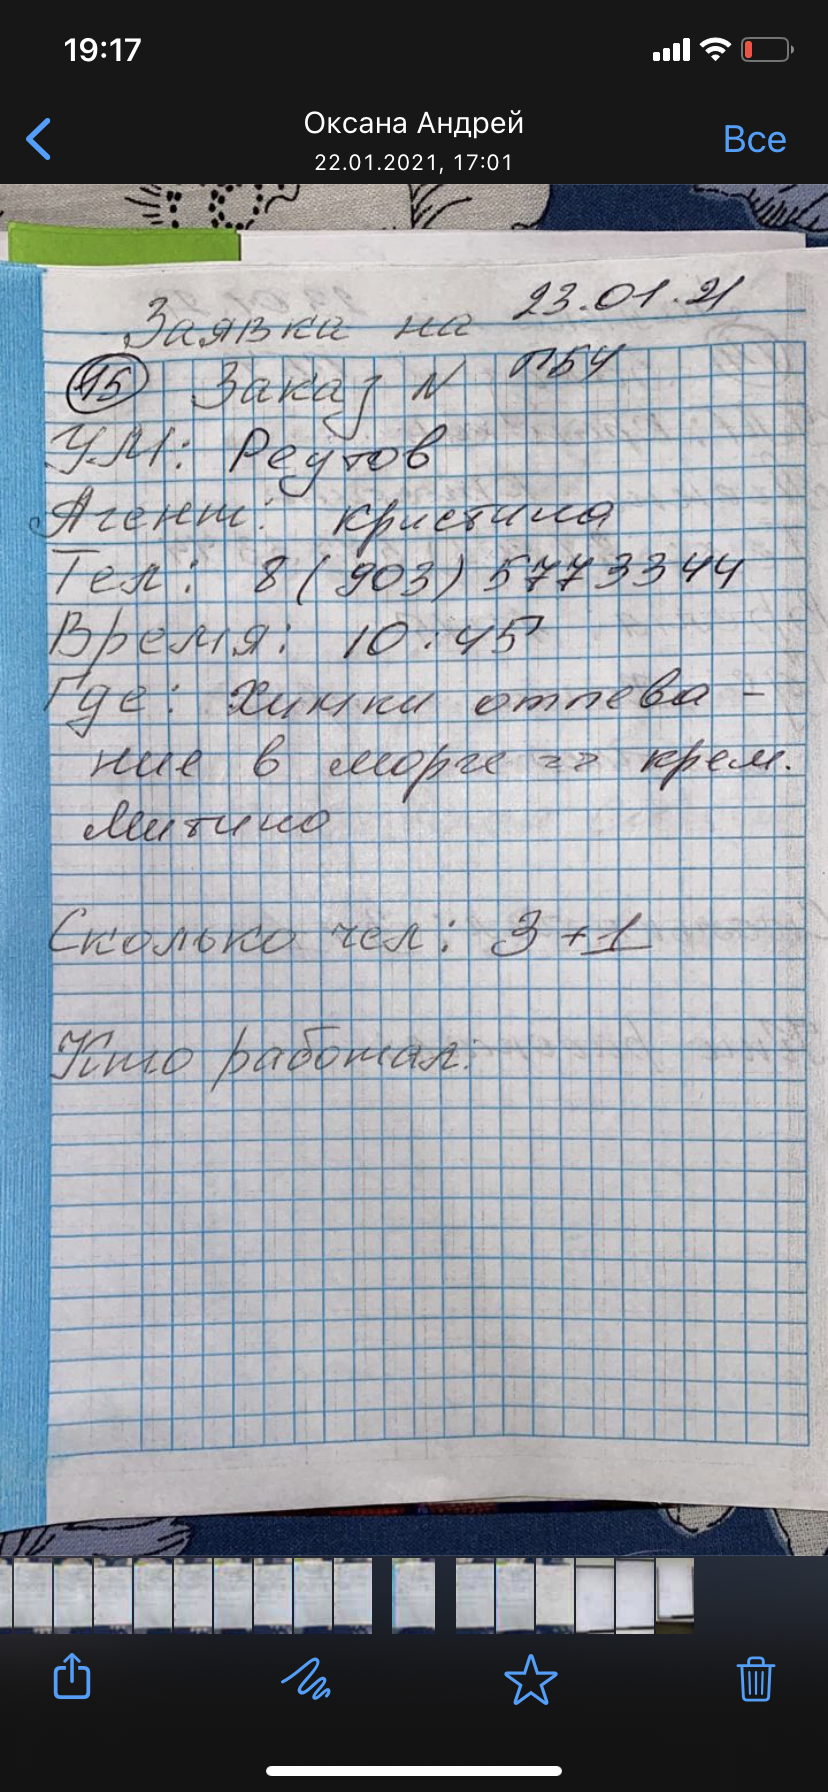 19:17
Оксана Андрей
22.01.2021, 17:01
Все
Заявка на 23.01.21
15 Заказ N ПБУ
У.М: Реутов
Агент: кристина
Тел: 8 (903) 5773344
Время: 10:45
Где: Химки отпева-
ние в морге => крем.
Митино
Сколько чел: 3+1
Кто работал: